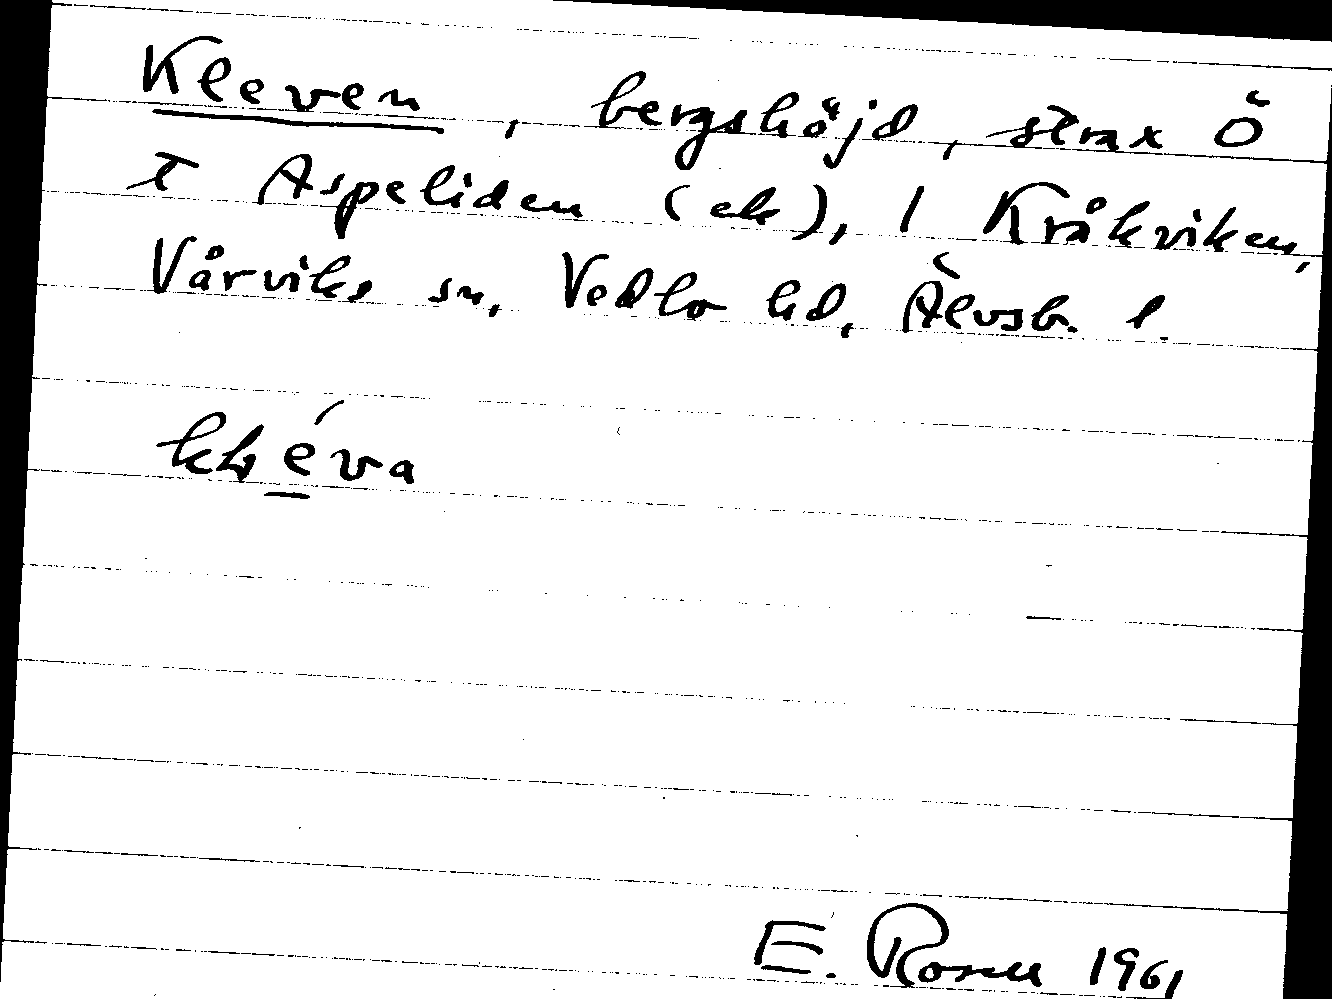 Kleven, bergshöjd, strax Ö
t Aspeliden (ek), 1 Kråkviken,
Vårviks sn, Vedbo hd, Älvsb. l.
kléva
E. Rosell 1961